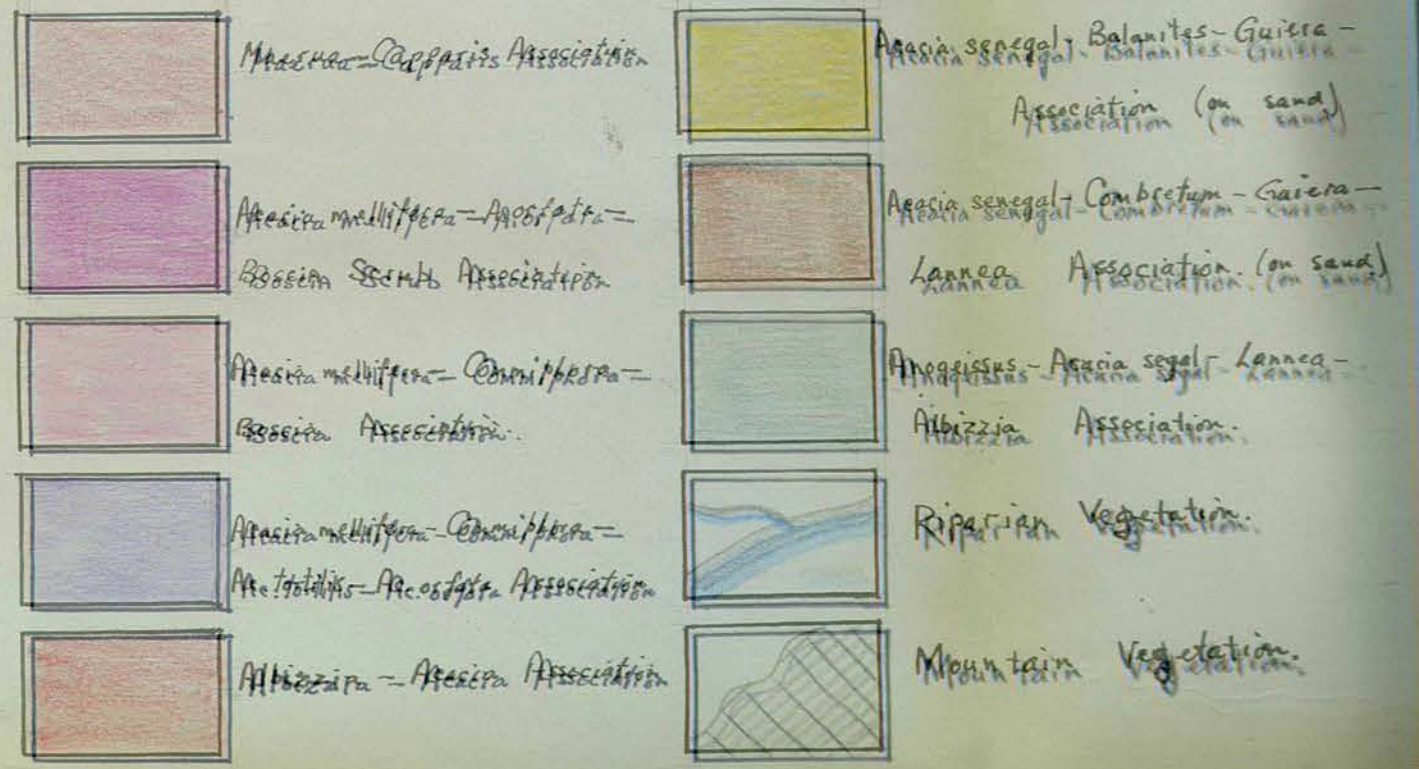 Maerua - Capparis Association
Acacia mellifera -
Boscia Scrub Association
Acacia mellifera - Commiphora -
Boscia Association.
Acacia mellifera - Commiphora -
Ac. tortilis - Association
Albizzia - Acacia Association
Acacia senegal - Balanites - Guiera -
Association (on sand)
Acacia senegal - Combretum - Guiera -
Lannea Association. (on sand)
Anogeissus - Acacia segal - Lannea -
Albizzia Association.
Riparian Vegetation.
Mountain Vegetation.